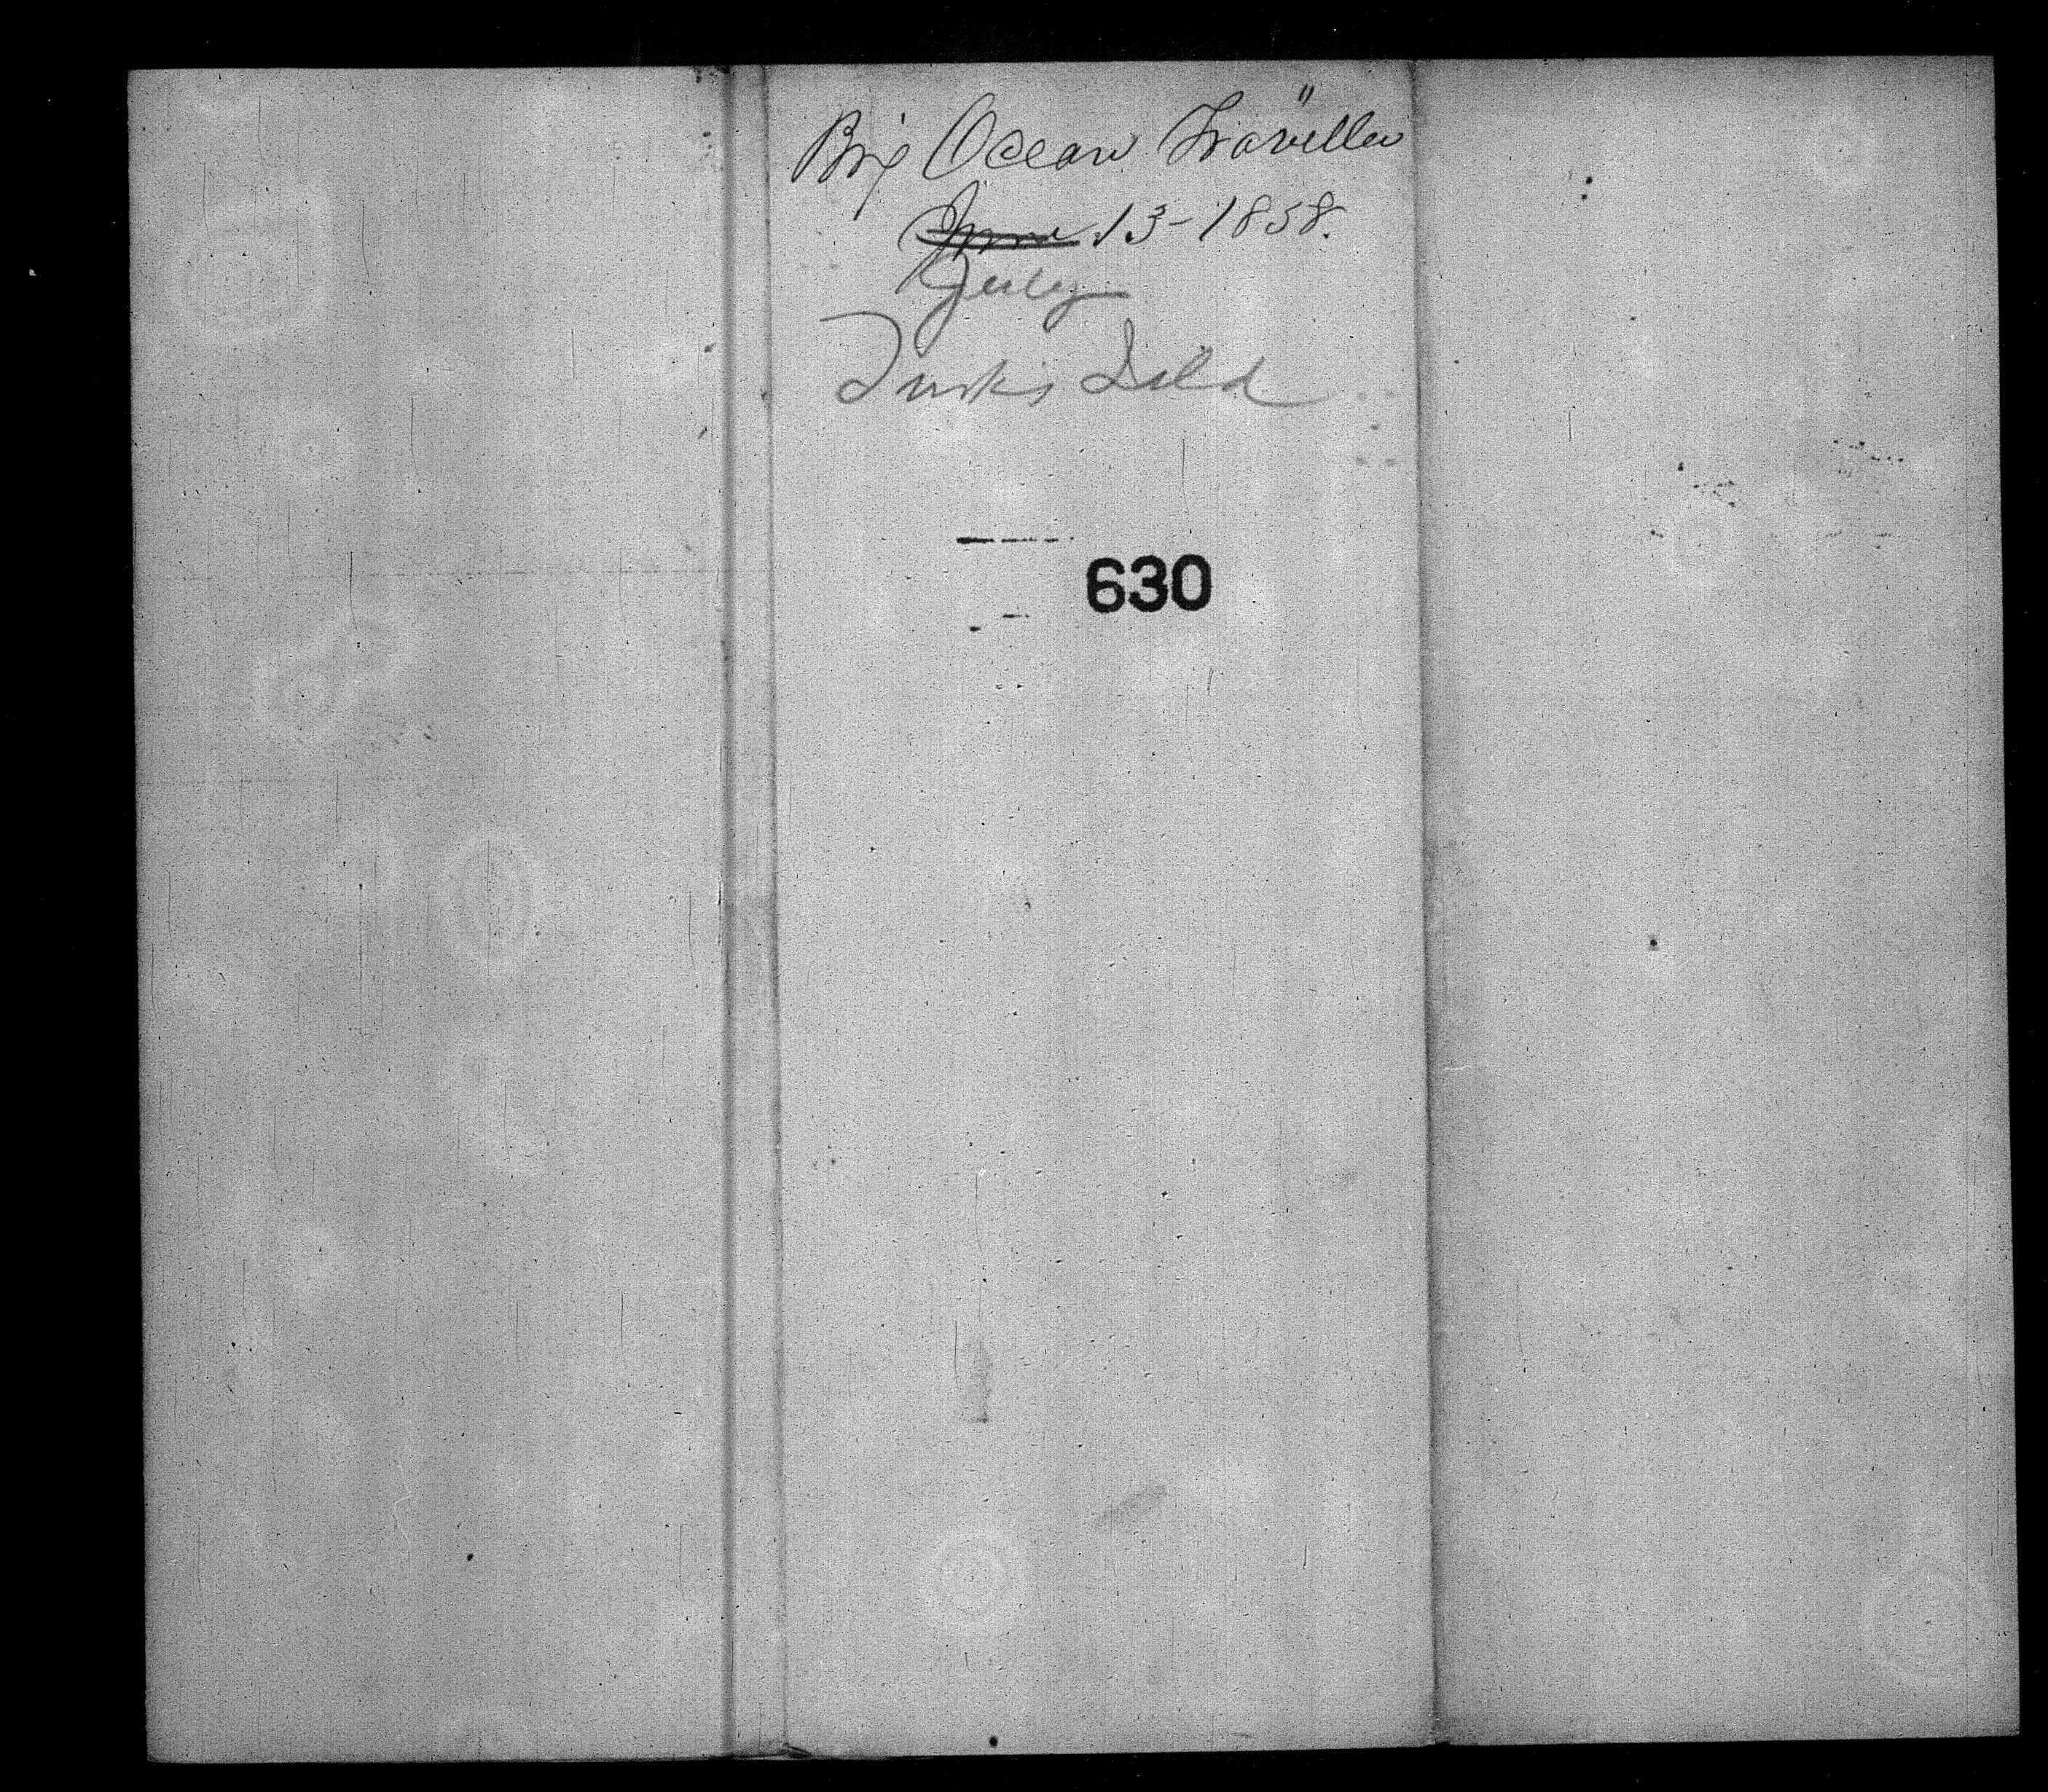 Brig Ocean Traveller
June 13-1858.
July
Turks Isld
630